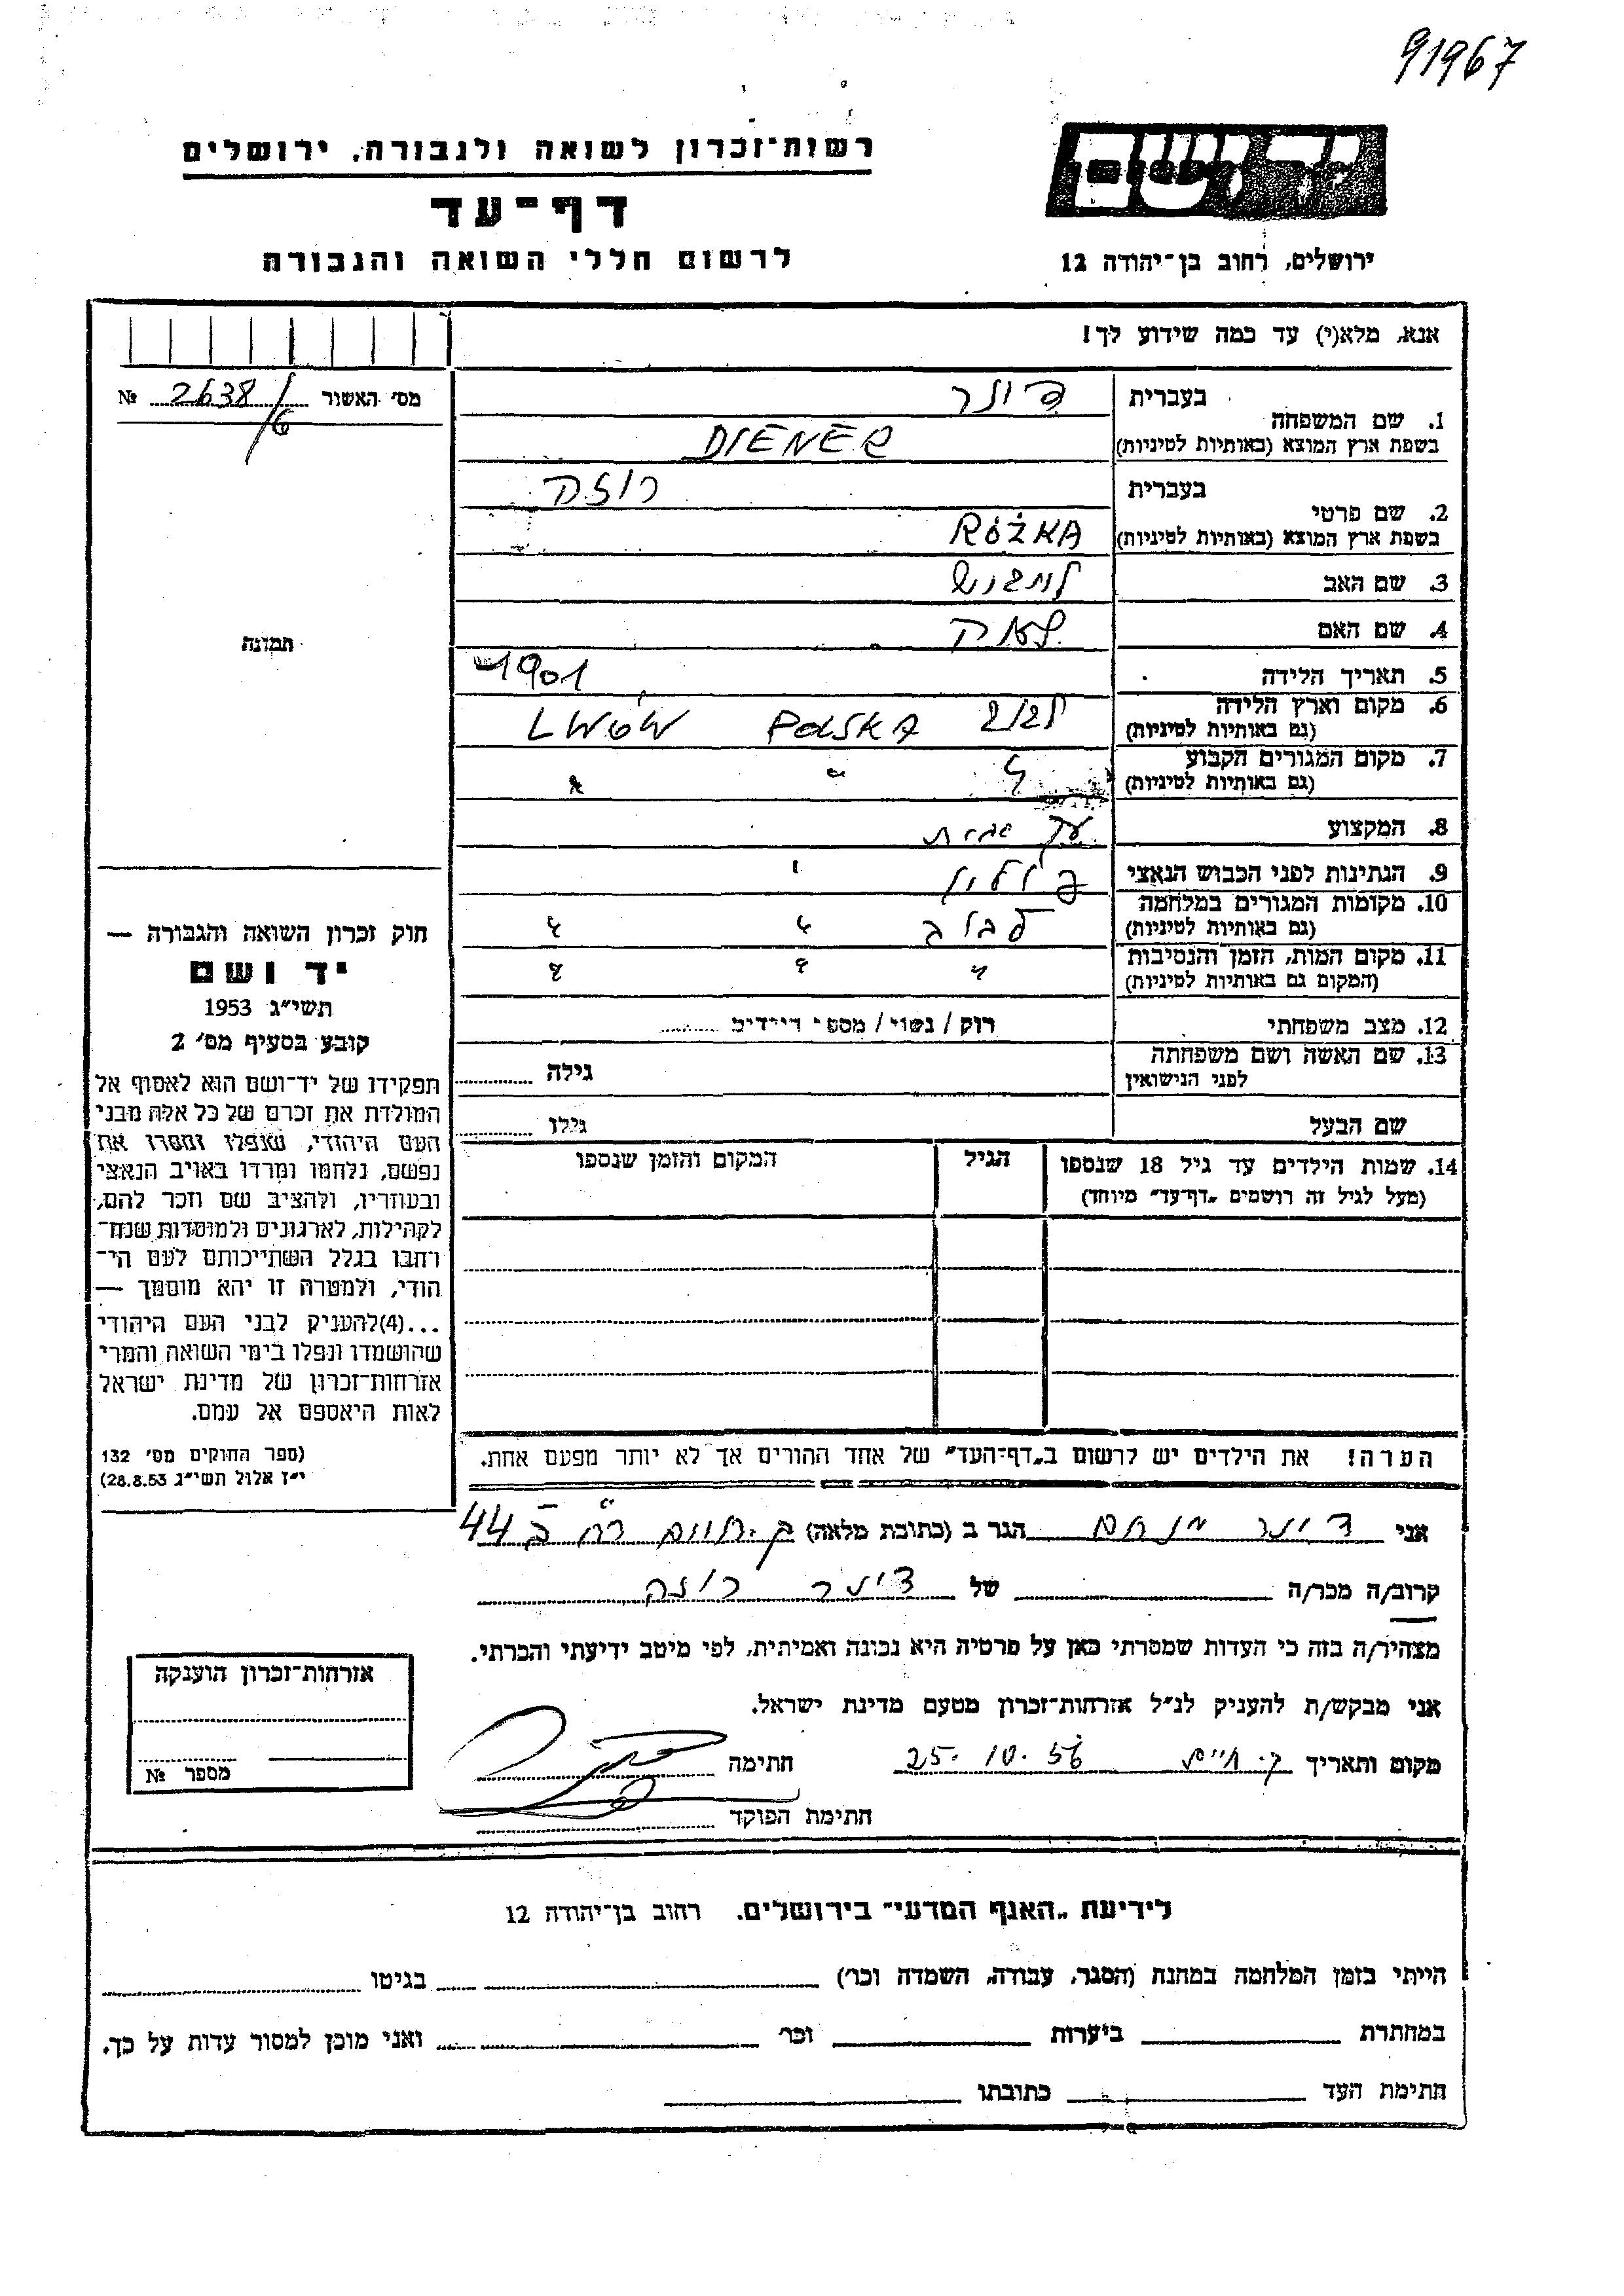 91967
יד ושם
רשות־זכרון לשואה ולגבורה, ירושלים
דף־עד
לרשום חללי השואה והגבורה
ירושלים, רחוב בן־יהודה 12
אנא, מלא(י) עד כמה שידוע לך!
מס׳ האשור 2638/6 №
תמונה
1. שם המשפחה
בעברית דינר
בשפת ארץ המוצא (באותיות לטיניות) DIENER
2. שם פרטי
בעברית רוזקה
בשפת ארץ המוצא (באותיות לטיניות) RÓŻKA
3. שם האב
4. שם האם
5. תאריך הלידה 1901
6. מקום וארץ הלידה
(גם באותיות לטיניות) POLSKA LWÓW
7. מקום המגורים הקבוע
(גם באותיות לטיניות) " " "
8. המקצוע
9. הנתינות לפני הכבוש הנאצי פולין
10. מקומות המגורים במלחמה
(גם באותיות לטיניות) " "
11. מקום המות, הזמן והנסיבות
(המקום גם באותיות לטיניות) " " "
12. מצב משפחתי רוק / נשוי / מספר הילדים
13. שם האשה ושם משפחתה
לפני הנישואין גילה
שם הבעל גילו
14. שמות הילדים עד גיל 18 שנספו
(מעל לגיל זה רושמים „דף־עד״ מיוחד)
הגיל
המקום והזמן שנספו
הערה! את הילדים יש לרשום ב„דף־העד״ של אחד ההורים אך לא יותר מפעם אחת.
חוק זכרון השואה והגבורה —
יד ושם
תשי״ג 1953
קובע בסעיף מס׳ 2
תפקידו של יד־ושם הוא לאסוף אל
המולדת את זכרם של כל אלה מבני
העם היהודי, שנפלו ומסרו את
נפשם, נלחמו ומרדו באויב הנאצי
ובעוזריו, ולהציב שם וזכר להם,
לקהילות, לארגונים ולמוסדות שנח־
רחבו בגלל השתייכותם לעם הי־
הודי, ולמטרה זו יהא מוסמך —
...(4)להעניק לבני העם היהודי
שהושמדו ונפלו בימי השואה והמרי
אזרחות־זכרון של מדינת ישראל
לאות היאספם אל עמם.
(ספר החוקים מס׳ 132
י״ז אלול תשי״ג 28.8.53)
אני דינר מנחם הגר ב (כתובת מלאה) ק. חיים רח ב 44
קרוב/ה מכר/ה של דינר רוזקה
מצהיר/ה בזה כי העדות שמסרתי כאן על פרטיה היא נכונה ואמיתית, לפי מיטב ידיעתי והכרתי.
אני מבקש/ת להעניק לנ״ל אזרחות־זכרון מטעם מדינת ישראל.
מקום ותאריך ק. חיים 25.10.56 חתימה
חתימת הפוקד
אזרחות־זכרון הוענקה
מספר №
לידיעת „האגף המדעי״ בירושלים. רחוב בן־יהודה 12
הייתי בזמן המלחמה במחנה (הסגר, עבודה, השמדה וכר׳) בגיטו
במחתרת ביערות וכר׳ ואני מוכן למסור עדות על כך.
חתימת העד כתובתו